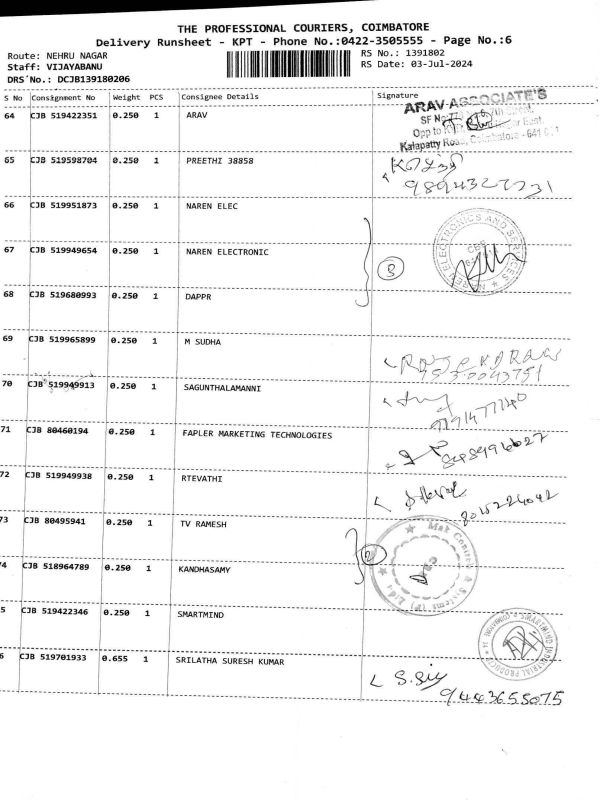 THE PROFESSIONAL COURIERS, COIMBATORE
Delivery Runsheet - KPT - Phone No.:0422-3505555 - Page No.:6
Route: NEHRU NAGAR RS No.: 1391802
Staff: VIJAYABANU RS Date: 03-Jul-2024
DRS No.: DCJB139180206
S No Consignment No Weight PCS Consignee Details Signature
ARAV ASSOCIATE'S
64 CJB 519422351 0.250 1 ARAV
SF No
Opp to
Kalapatty Road, Coimbatore - 641
65 CJB 519598704 0.250 1 PREETHI 38858
9894327731
66 CJB 519951873 0.250 1 NAREN ELEC
67 CJB 519949654 0.250 1 NAREN ELECTRONIC
3
ELECTRONICS AND SERVICES
68 CJB 519680993 0.250 1 DAPPR
69 CJB 519965899 0.250 1 M SUDHA
70 CJB 519949913 0.250 1 SAGUNTHALAMANNI
71 CJB 80460194 0.250 1 FAPLER MARKETING TECHNOLOGIES
8489996027
72 CJB 519949938 0.250 1 RTEVATHI
73 CJB 80495941 0.250 1 TV RAMESH
2
Mak Control & Systems (P) Ltd
74 CJB 518964789 0.250 1 KANDHASAMY
5 CJB 519422346 0.250 1 SMARTMIND
SMARTMIND INDUSTRIAL PRODUCTS
6 CJB 519701933 0.655 1 SRILATHA SURESH KUMAR
9443655075